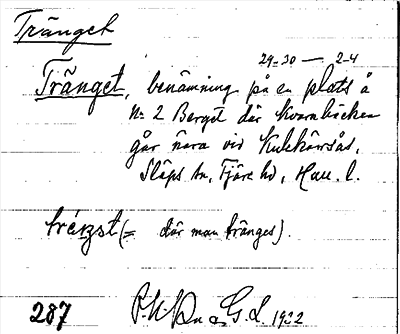 Tränget
29-30 — 2-4
Tränget, benämning på en plats å
No 2 Berget där kvarnbäcken
går nära vid Kulekärrsås,
Släps sn, Fjäre hd, Hall. l.
(= där man tränges).
287 G. L. 1932